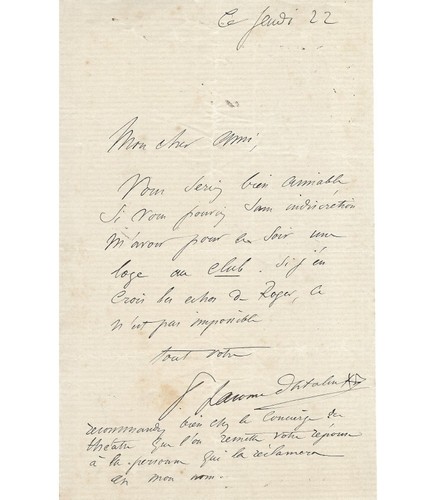 Ce Jeudi 22
Mon cher ami,
Vous seriez bien aimable
Si vous pouviez sans indiscrétion
m'avoir pour ce soir une
loge au club. Si j'en
Crois les echos de Roger, ce
n'est pas impossible
tout votre
recommandez bien chez le Concierge du
théatre que l'on remette votre réponse
à la personne qui la réclamera
en mon nom.